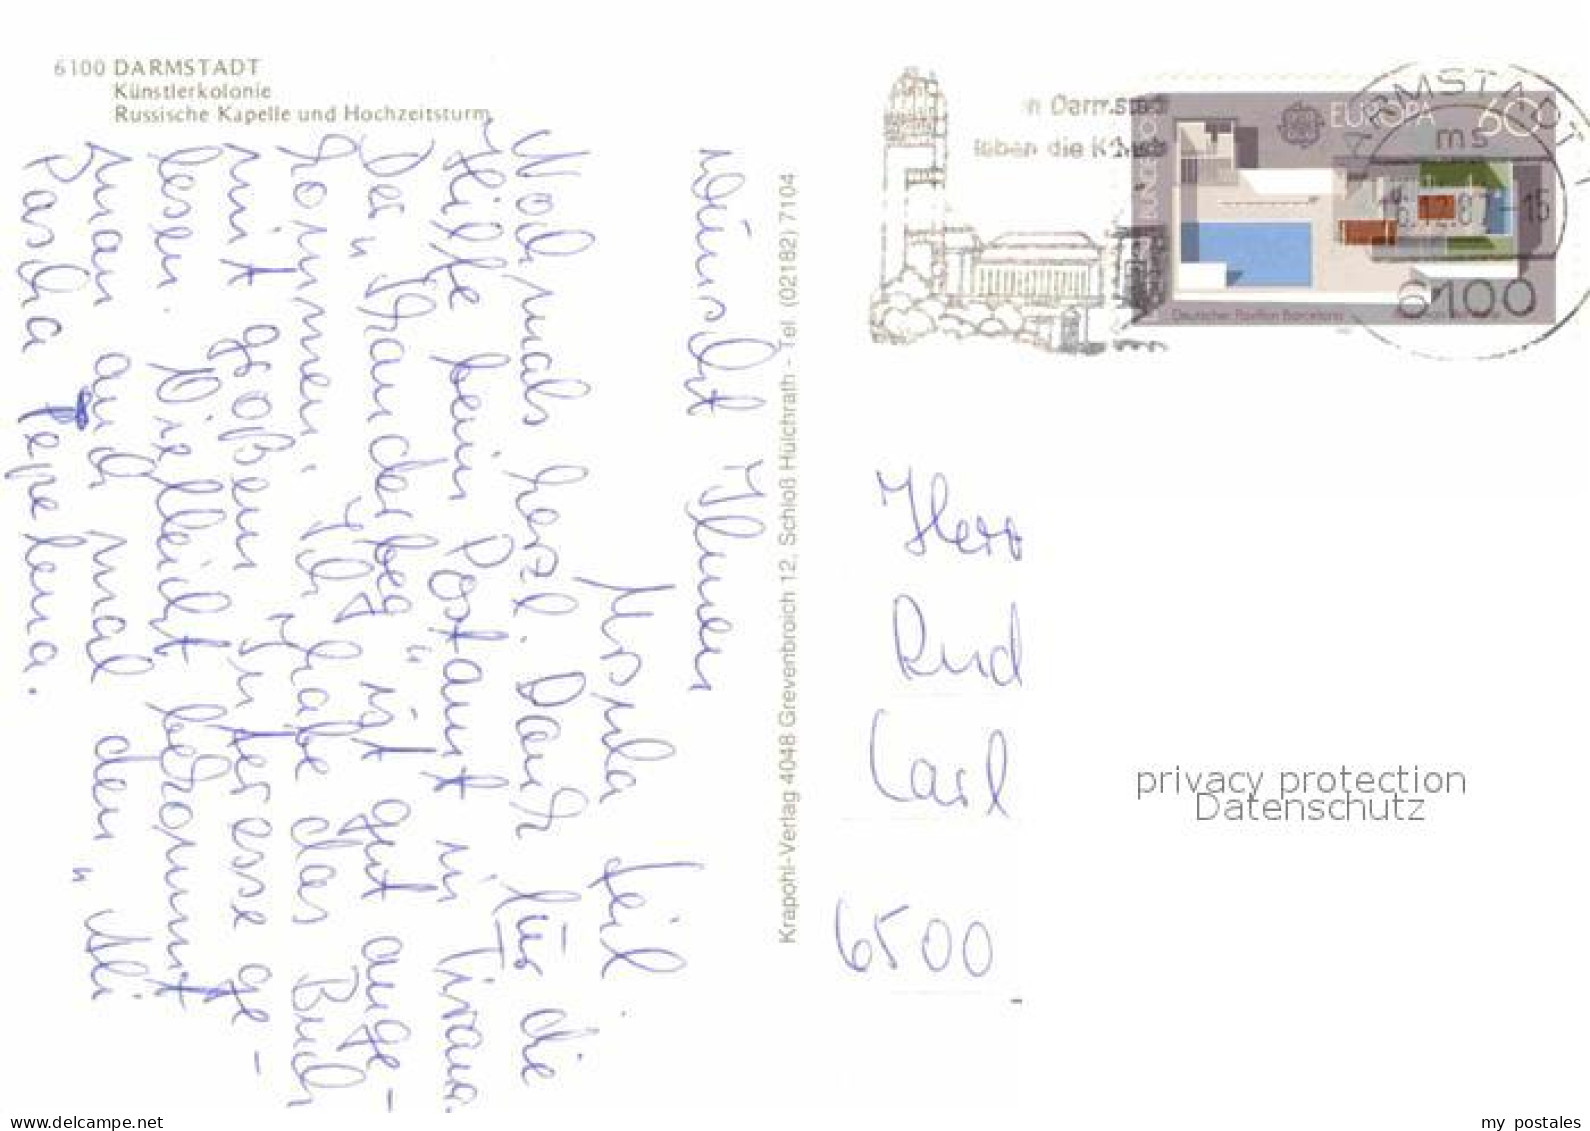 6100 DARMSTADT
Künstlerkolonie
Russische Kapelle und Hochzeitsturm
wünscht Ihnen
Ursula
Nochmals herzl. Dank für die
Hilfe beim Postamt in Tirana.
Der "Skanderbeg" ist gut ange-
kommen. Ich habe das Buch
mit großem Interesse ge-
lesen. Vielleicht bekommt
man auch mal den "Ali
Pascha Tepelena.
Krapohl-Verlag 4048 Grevenbroich 12, Schloß Hülchrath - Tel. (02182) 7104
in Darmstadt
leben die Künste
EUROPA 60
Deutscher Pavillon Barcelona
DARMSTADT
ms
6100
Herr
Rud
Carl
6500
privacy protection
Datenschutz
www.delcampe.net
my_postales